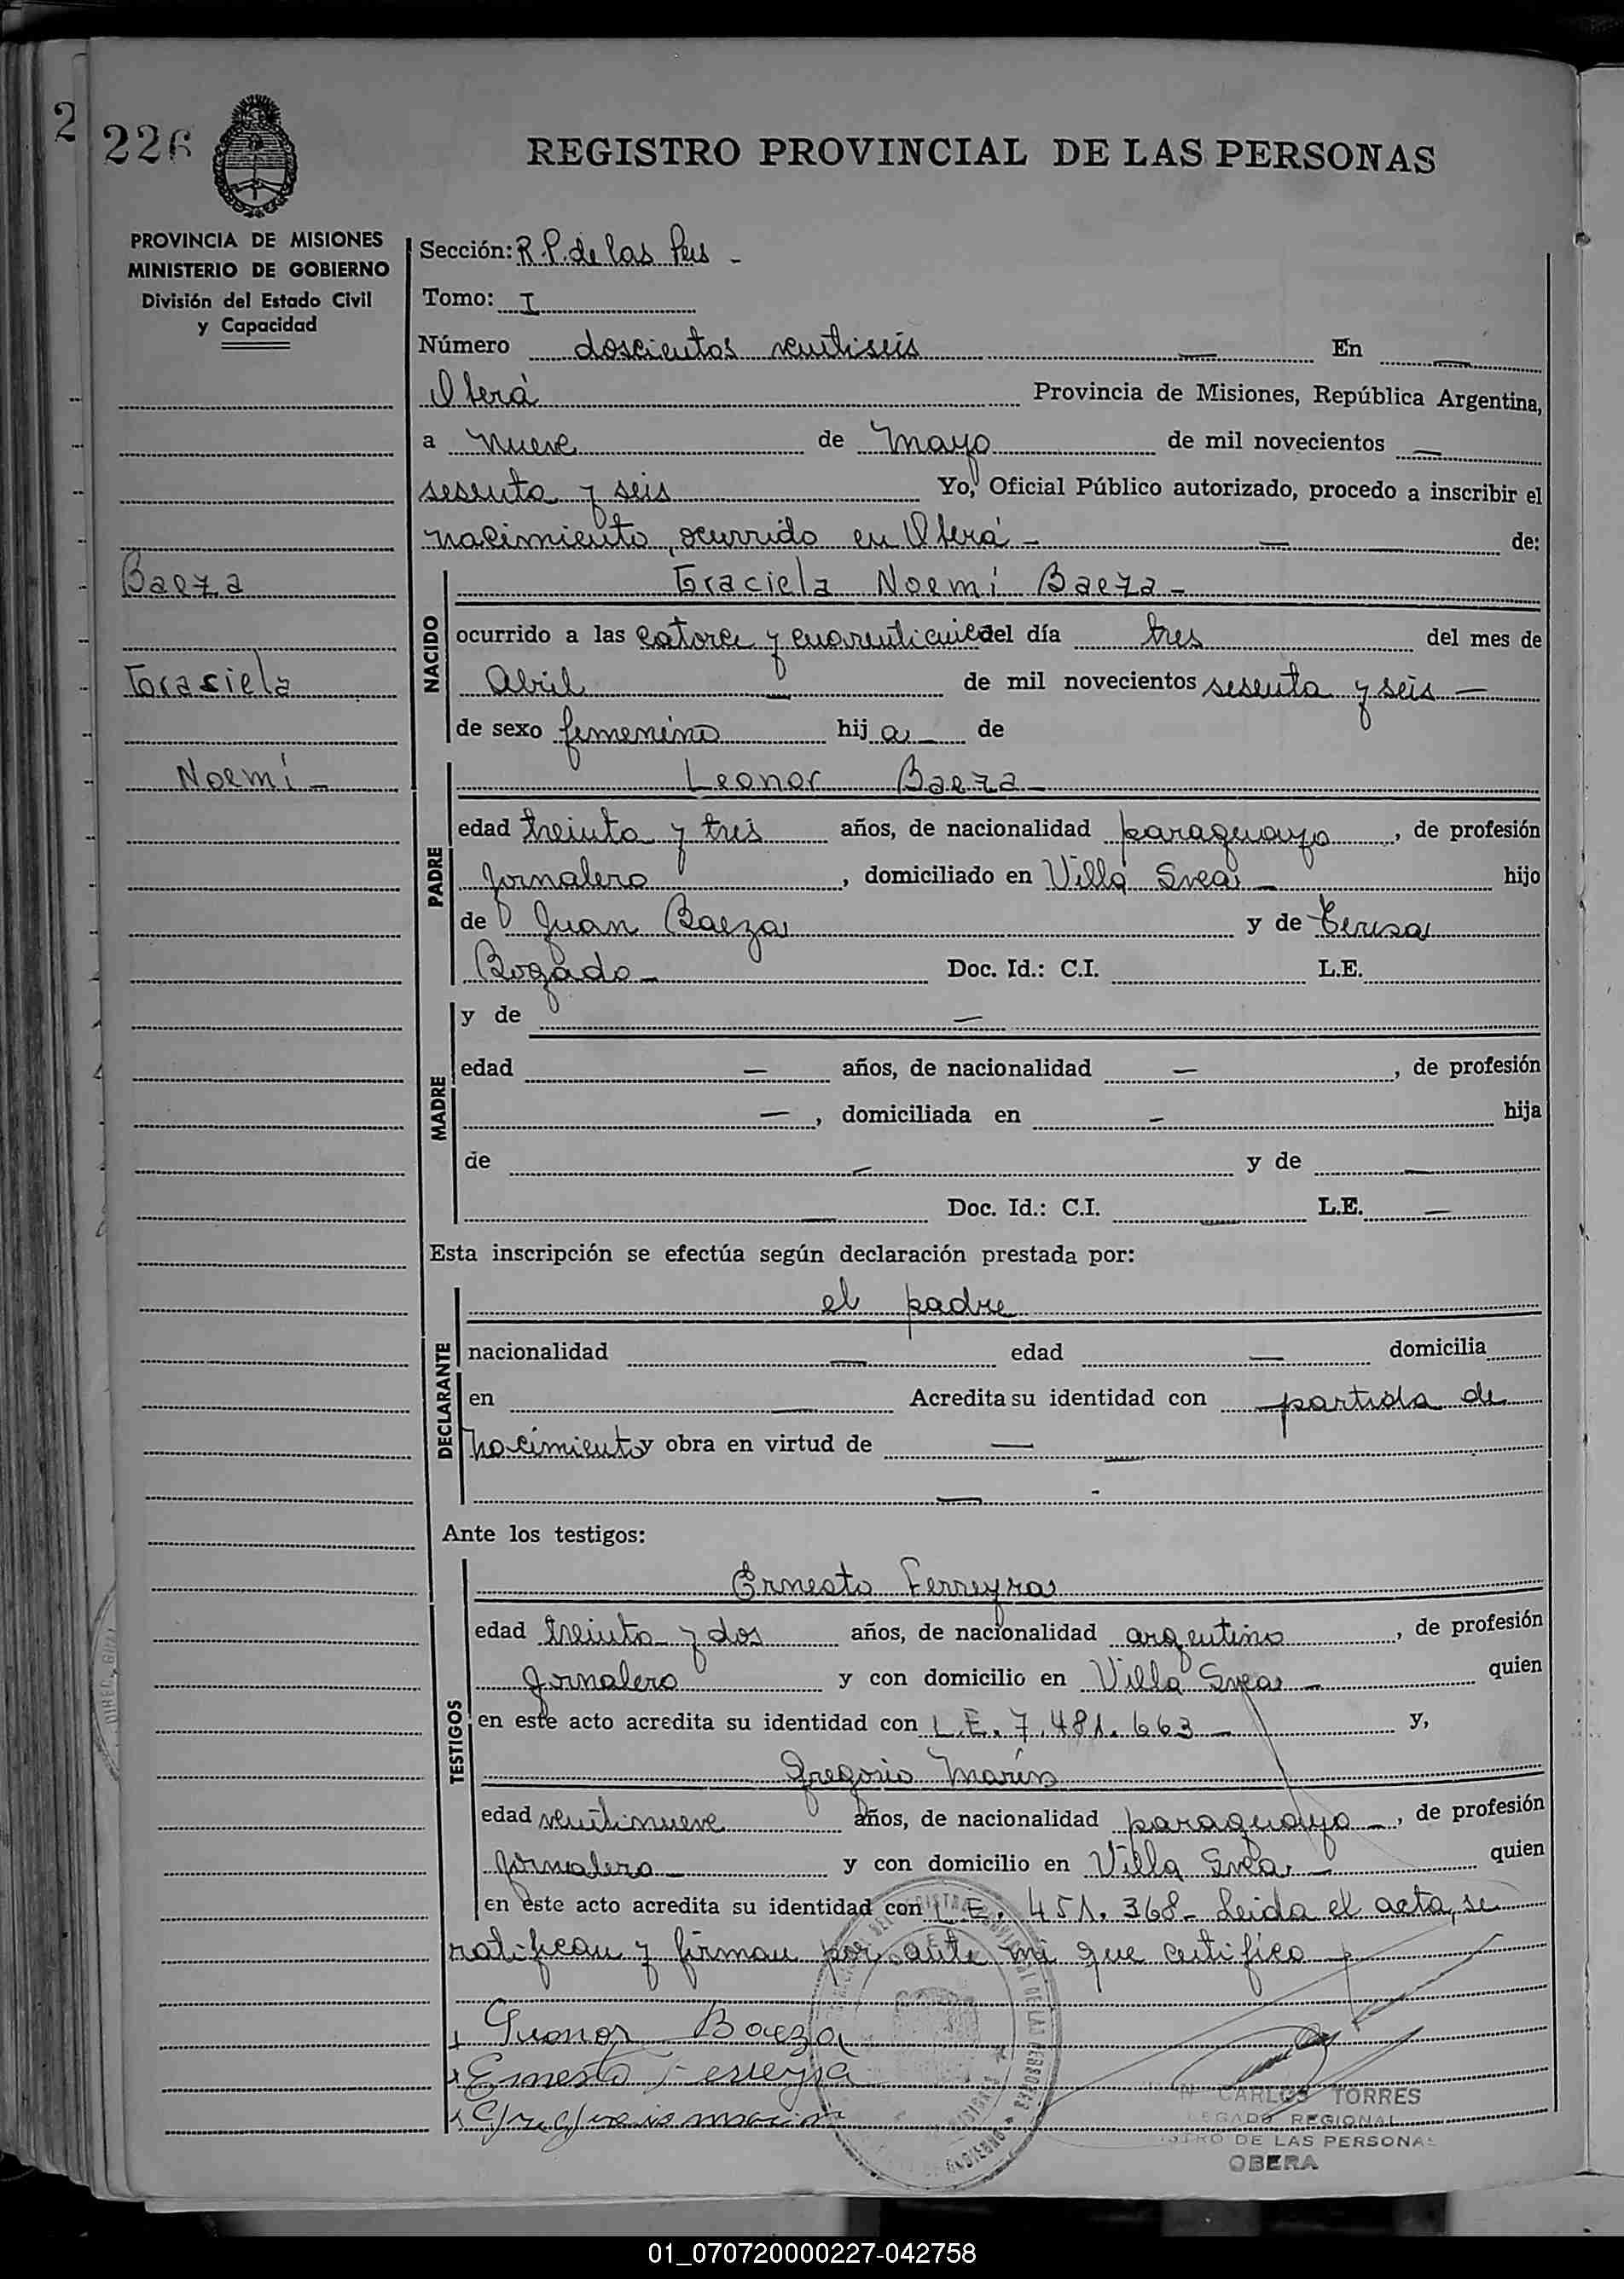 2
226
REGISTRO PROVINCIAL DE LAS PERSONAS
PROVINCIA DE MISIONES
MINISTERIO DE GOBIERNO
División del Estado Civil
y Capacidad
Baeza
Graciela
Noemí -
Sección: R.P. de las Pers -
Tomo: I
Número doscientos veintiseis — En —
Oberá Provincia de Misiones, República Argentina,
a nueve de Mayo de mil novecientos —
sesenta y seis Yo, Oficial Público autorizado, procedo a inscribir el
nacimiento, ocurrido en Oberá - — — de:
NACIDO
Graciela Noemí Baeza -
ocurrido a las catorce y del día tres del mes de
Abril — de mil novecientos sesenta y seis —
de sexo femenino hij a — de
PADRE
Leonor Baeza -
edad treinta y tres años, de nacionalidad paraguayo , de profesión
Jornalero , domiciliado en Villa Svea - hijo
de Juan Baeza y de Teresa
Bogado - Doc. Id.: C.I. L.E.
MADRE
y de —
edad — años, de nacionalidad — , de profesión
— , domiciliada en — hija
de — y de —
— Doc. Id.: C.I. — L.E. —
Esta inscripción se efectúa según declaración prestada por:
DECLARANTE
el padre
nacionalidad — edad — domicilia
en — Acredita su identidad con partida de
nacimiento y obra en virtud de — —
—
Ante los testigos:
TESTIGOS
Ernesto Ferreyra
edad treinta y dos años, de nacionalidad argentino , de profesión
Jornalero y con domicilio en Villa Svea - quien
en este acto acredita su identidad con L.E. 7.481.663 — y,
Gregorio Marín
edad veintinueve años, de nacionalidad paraguayo - , de profesión
Jornalero - y con domicilio en Villa Svea - quien
en este acto acredita su identidad con L.E. 451.368 - Leida el acta, se
ratifican y firman por ante mi que certifico
Leonor Baeza
Ernesto Ferreyra
Gregorio marin
CARLOS TORRES
REGIONAL
DE LAS PERSONAS
OBERA
01_070720000227-042758